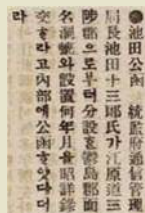 ●池田公函 統監府通信管理
局長池田十三郞氏가江原道三
陟郡으로부터分設ᄒᆞᆫ鬱島郡面
名洞號와設置何年月을昭詳錄
交ᄒᆞ라고內部에公函ᄒᆞ얏다더
라